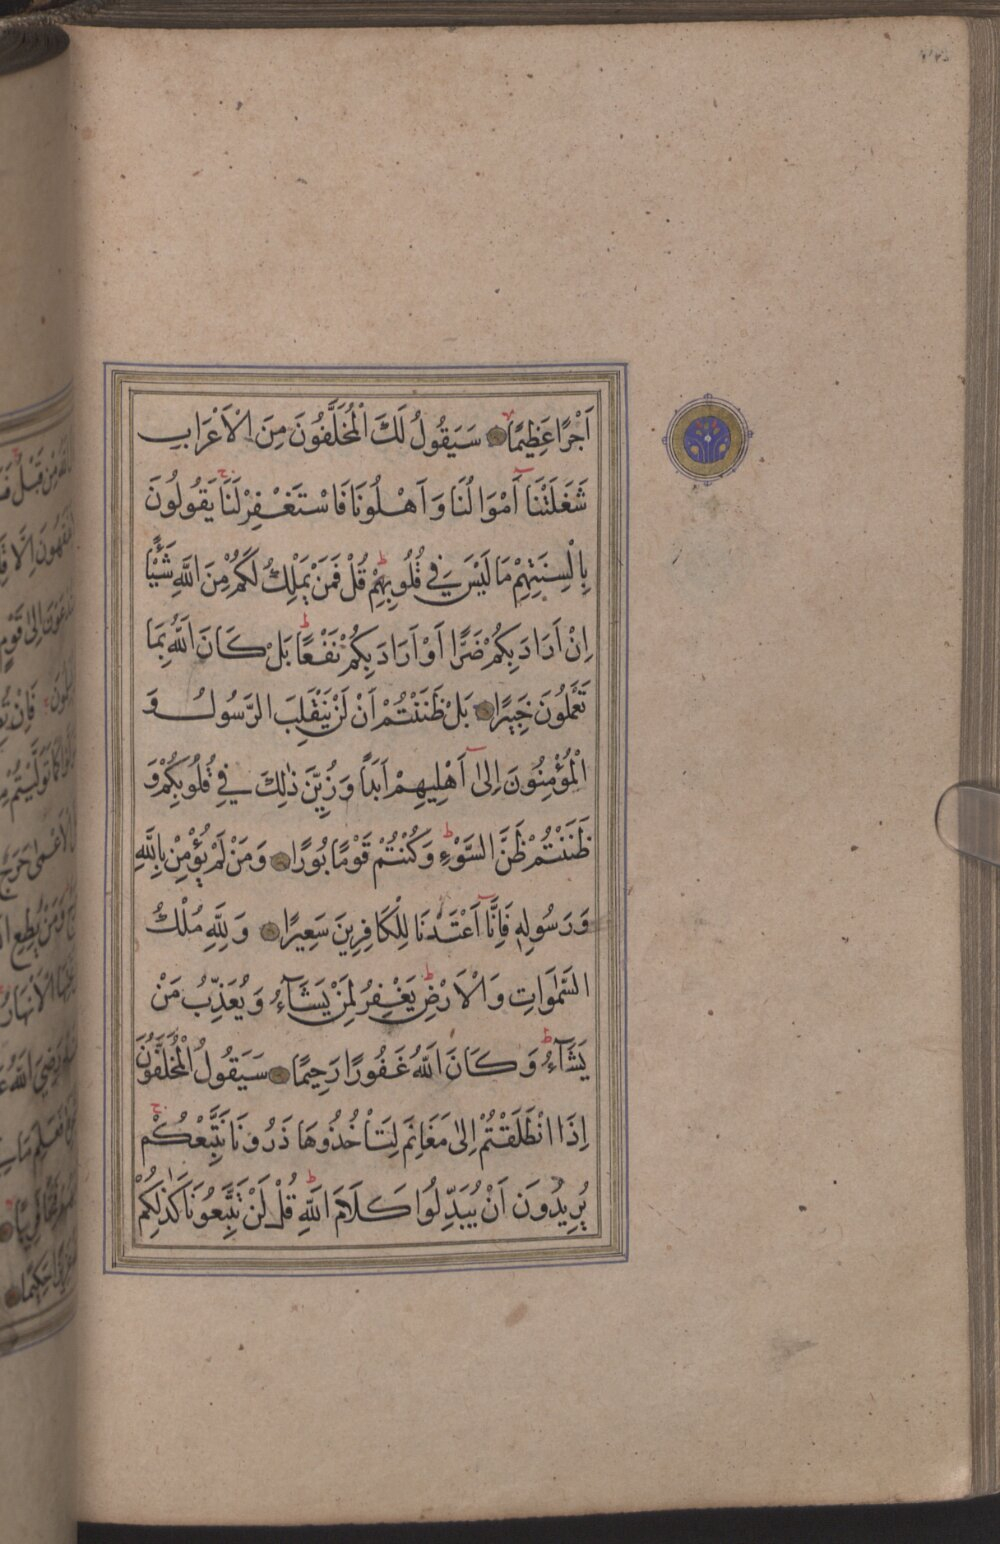 اَجْرًا عَظِيمًا سَيَقُولُ لَكَ الْمُخَلَّفُونَ مِنَ الْاَعْرَابِ
شَغَلَتْنَا اَمْوَالُنَا وَاَهْلُونَا فَاسْتَغْفِرْ لَنَا يَقُولُونَ
بِاَلْسِنَتِهِمْ مَا لَيْسَ فِي قُلُوبِهِمْ قُلْ فَمَنْ يَمْلِكُ لَكُمْ مِنَ اللّٰهِ شَيْئًا
اِنْ اَرَادَ بِكُمْ ضَرًّا اَوْ اَرَادَ بِكُمْ نَفْعًا بَلْ كَانَ اللّٰهُ بِمَا
تَعْمَلُونَ خَبِيرًا بَلْ ظَنَنْتُمْ اَنْ لَنْ يَنْقَلِبَ الرَّسُولُ وَ
الْمُؤْمِنُونَ اِلٰى اَهْلِيهِمْ اَبَدًا وَزُيِّنَ ذٰلِكَ فِي قُلُوبِكُمْ وَ
ظَنَنْتُمْ ظَنَّ السَّوْءِ وَكُنْتُمْ قَوْمًا بُورًا وَمَنْ لَمْ يُؤْمِنْ بِاللّٰهِ
وَرَسُولِهِ فَاِنَّا اَعْتَدْنَا لِلْكَافِرِينَ سَعِيرًا وَلِلّٰهِ مُلْكُ
السَّمٰوَاتِ وَالْاَرْضِ يَغْفِرُ لِمَنْ يَشَآءُ وَيُعَذِّبُ مَنْ
يَشَآءُ وَكَانَ اللّٰهُ غَفُورًا رَحِيمًا سَيَقُولُ الْمُخَلَّفُونَ
اِذَا انْطَلَقْتُمْ اِلٰى مَغَانِمَ لِتَأْخُذُوهَا ذَرُونَا نَتَّبِعْكُمْ
يُرِيدُونَ اَنْ يُبَدِّلُوا كَلَامَ اللّٰهِ قُلْ لَنْ تَتَّبِعُونَا كَذٰلِكُمْ